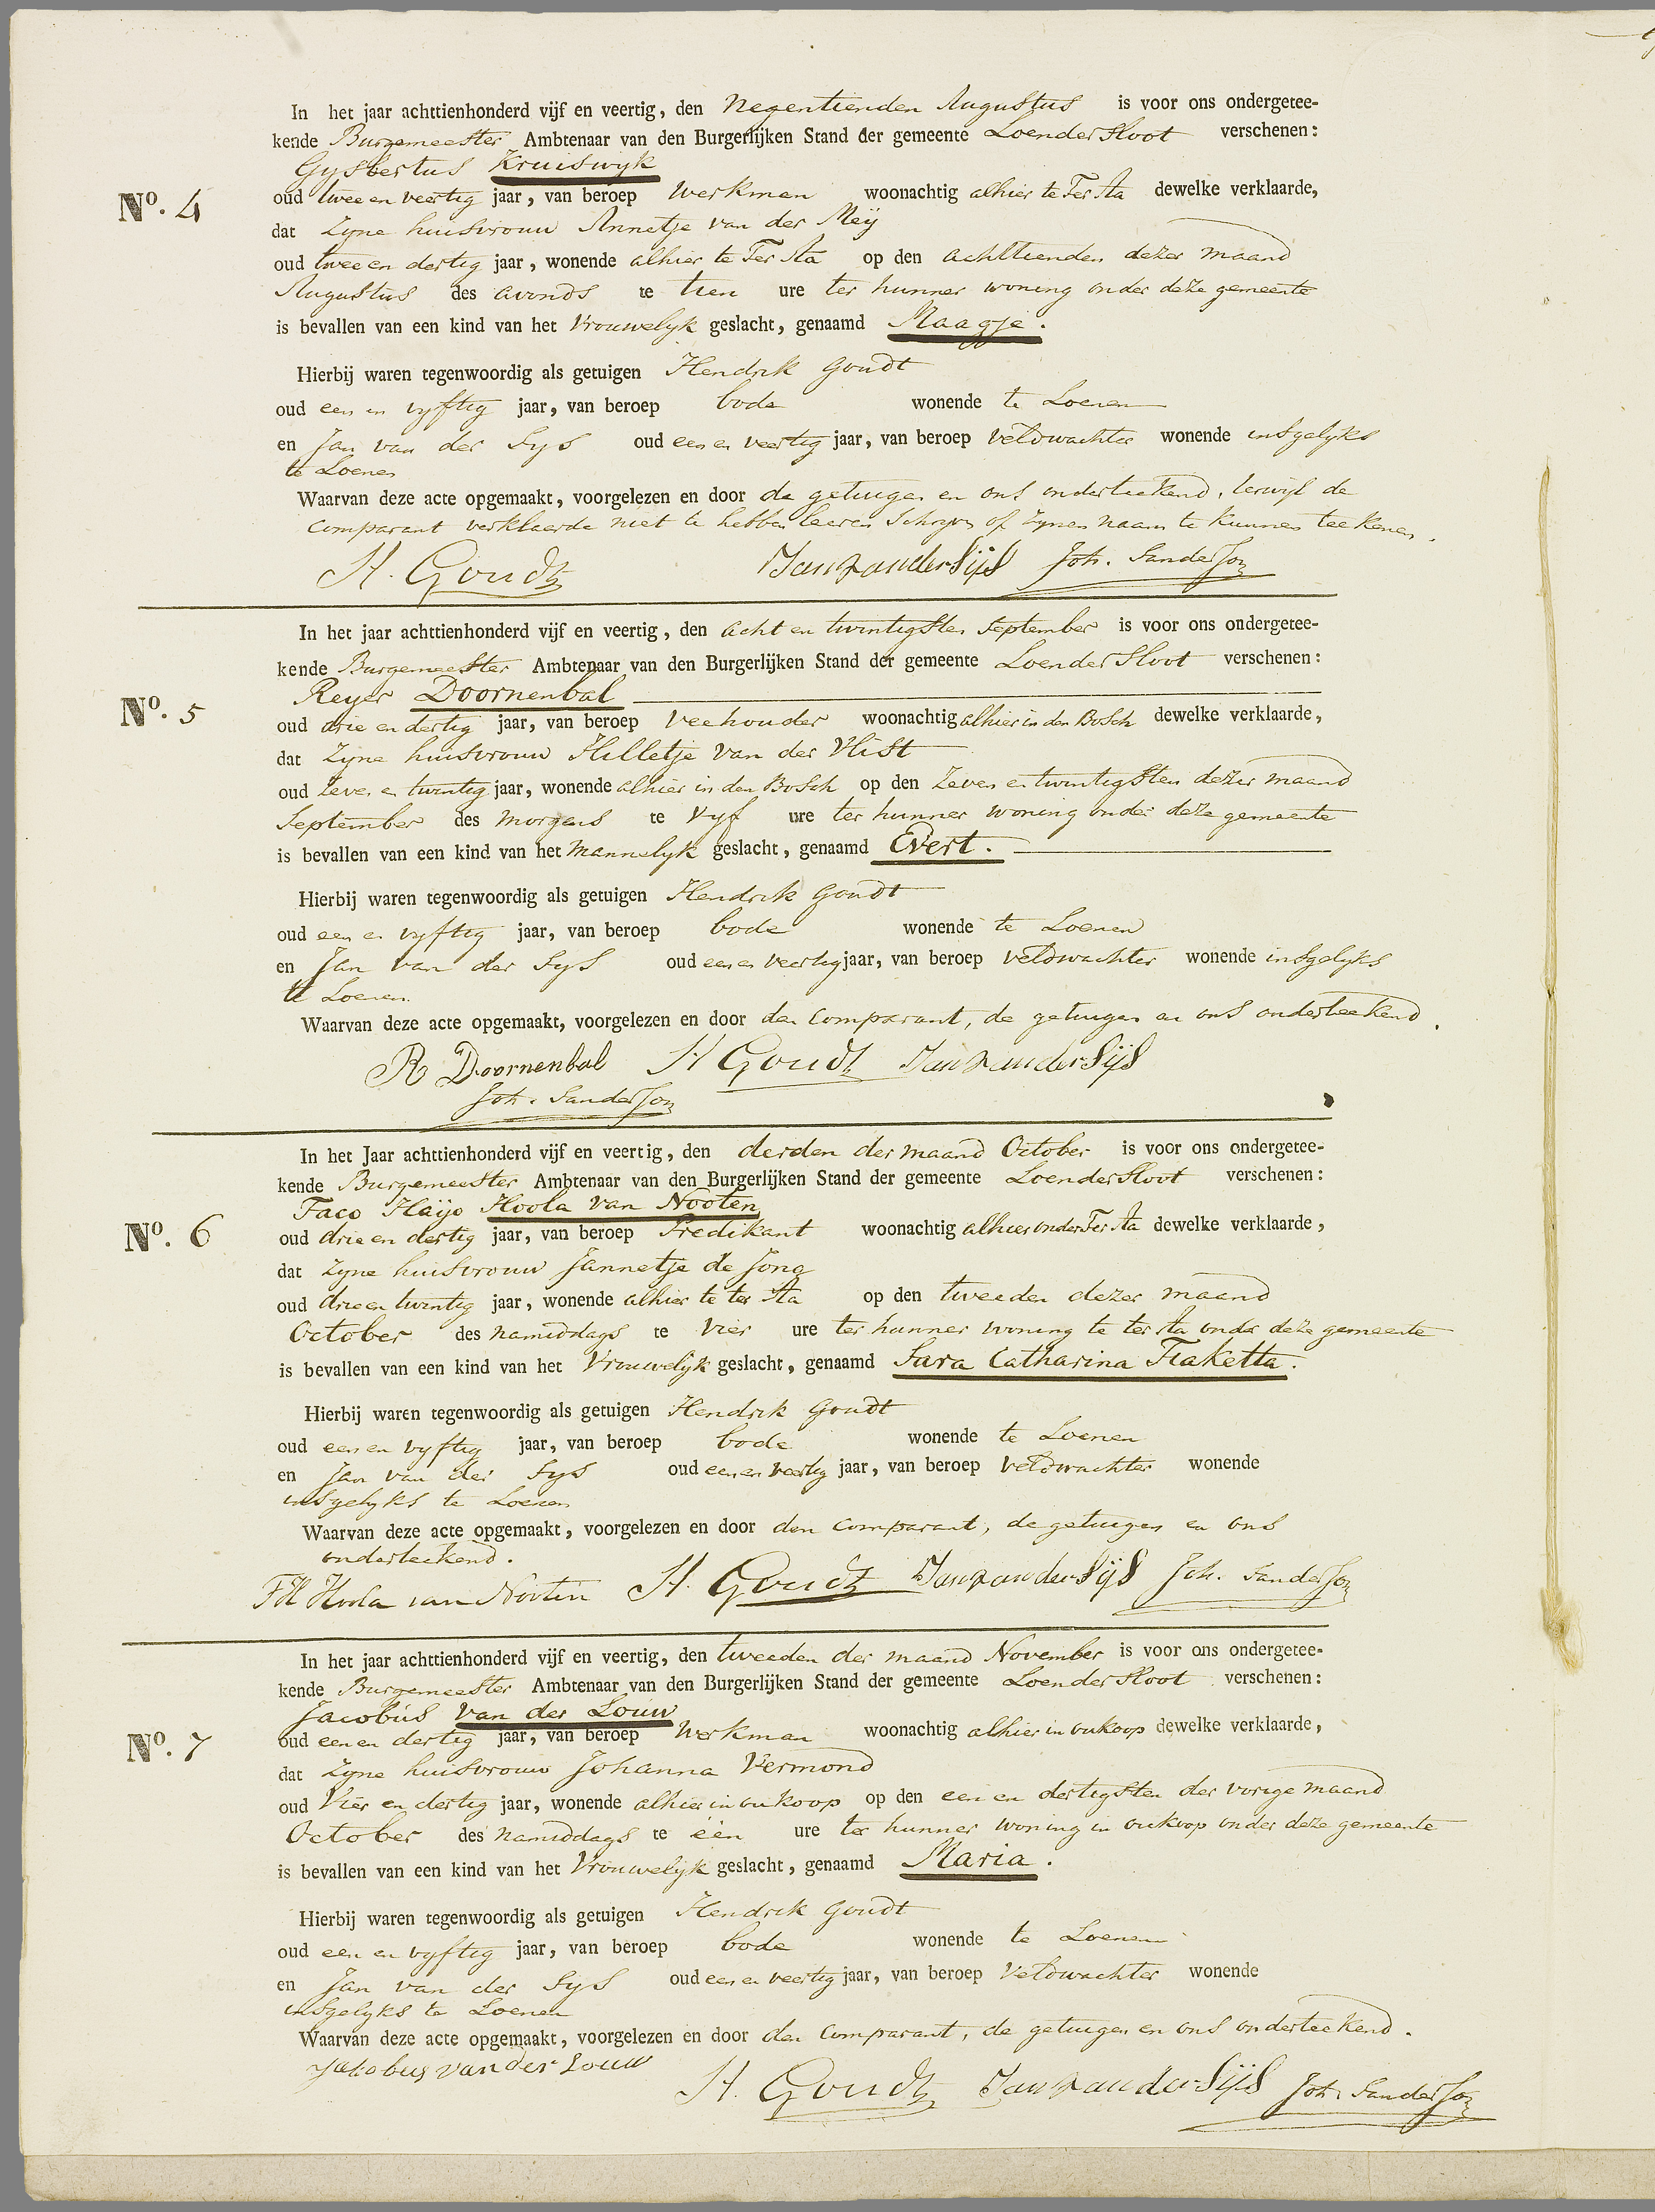 In het jaar achttienhonderd vijf en veertig, den Negentienden Augustus is voor ons ondergetee-
kende Burgemeester Ambtenaar van den Burgerlijken Stand der gemeente Loendersloot verschenen:
Gysbertus Kruiswyk
No. 4
oud twee en veertig jaar, van beroep Werkman woonachtig alhier te Ter Aa dewelke verklaarde,
dat Zyne huisvrouw Annetje van der Meÿ
oud twee en dertig jaar, wonende alhier te Ter Aa op den achttienden dezer maand
Augustus des avonds te tien ure ter hunner woning onder deze gemeente
is bevallen van een kind van het Vrouwelyk geslacht, genaamd Maagje.
Hierbij waren tegenwoordig als getuigen Hendrik Goudt
oud een en vyftig jaar, van beroep bode wonende te Loenen
en Jan van der Sys oud een en veertig jaar, van beroep veldwachter wonende insgelyks
te Loenen
Waarvan deze acte opgemaakt, voorgelezen en door de getuigen en ons onderteekend, terwyl de
comparant verklaarde niet te hebben leeren Schryven of Zynen naam te kunnen teekenen.
H. Goudt Jan van der Sijs Joh. Sanderson
In het jaar achttienhonderd vijf en veertig, den acht en twintigsten September is voor ons ondergetee-
kende Burgemeester Ambtenaar van den Burgerlijken Stand der gemeente Loendersloot verschenen:
Reyer Doornenbal
No. 5
oud drie en dertig jaar, van beroep Veehouder woonachtig alhier in den Bosch dewelke verklaarde,
dat Zyne huisvrouw Hilletje van der Vlist
oud Zeven en twintig jaar, wonende alhier in den Bosch op den Zeven en twintigsten dezer maand
September des morgens te Vyf ure ter hunner woning onder deze gemeente
is bevallen van een kind van het Mannelyk geslacht, genaamd Evert.
Hierbij waren tegenwoordig als getuigen Hendrik Goudt
oud een en vyftig jaar, van beroep bode wonende te Loenen
en Jan van der Sys oud een en veertig jaar, van beroep veldwachter wonende insgelyks
te Loenen
Waarvan deze acte opgemaakt, voorgelezen en door den comparant, de getuigen en ons onderteekend.
R Doornenbal H Goudt Jan van der Sijs
Joh. Sanderson
In het Jaar achttienhonderd vijf en veertig, den derden der maand October is voor ons ondergetee-
kende Burgemeester Ambtenaar van den Burgerlijken Stand der gemeente Loendersloot verschenen:
Taco Haÿo Hoola van Nooten
No. 6
oud drie en dertig jaar, van beroep Predikant woonachtig alhier onder Ter Aa dewelke verklaarde,
dat Zyne huisvrouw Jannetje de Jong
oud drie en twintig jaar, wonende alhier te ter Aa op den tweeden dezer maand
October des namiddags te vier ure ter hunner woning te ter Aa onder deze gemeente
is bevallen van een kind van het Vrouwelyk geslacht, genaamd Sara Catharina Fraketta.
Hierbij waren tegenwoordig als getuigen Hendrik Goudt
oud een en vyftig jaar, van beroep bode wonende te Loenen
en Jan van der Sys oud een en veertig jaar, van beroep veldwachter wonende
insgelyks te Loenen
Waarvan deze acte opgemaakt, voorgelezen en door den comparant, de getuigen en ons
onderteekend.
TH Hoola van Nooten H. Goudt Jan van der Sijs Joh. Sanderson
In het jaar achttienhonderd vijf en veertig, den tweeden der maand November is voor ons ondergetee-
kende Burgemeester Ambtenaar van den Burgerlijken Stand der gemeente Loendersloot verschenen:
Jacobus van der Louw
No. 7
oud een en dertig jaar, van beroep Werkman woonachtig alhier in oukoop dewelke verklaarde,
dat Zyne huisvrouw Johanna Vermond
oud Vier en dertig jaar, wonende alhier in oukoop op den een en dertigsten der vorige maand
October des namiddags te één ure ter hunner woning in oukoop onder deze gemeente
is bevallen van een kind van het Vrouwelyk geslacht, genaamd Maria.
Hierbij waren tegenwoordig als getuigen Hendrik Goudt
oud een en vyftig jaar, van beroep bode wonende te Loenen
en Jan van der Sys oud een en veertig jaar, van beroep veldwachter wonende
insgelyks te Loenen
Waarvan deze acte opgemaakt, voorgelezen en door den comparant, de getuigen en ons onderteekend.
Jacobus van der Louw
H. Goudt Jan van der Sijs Joh. Sanderson